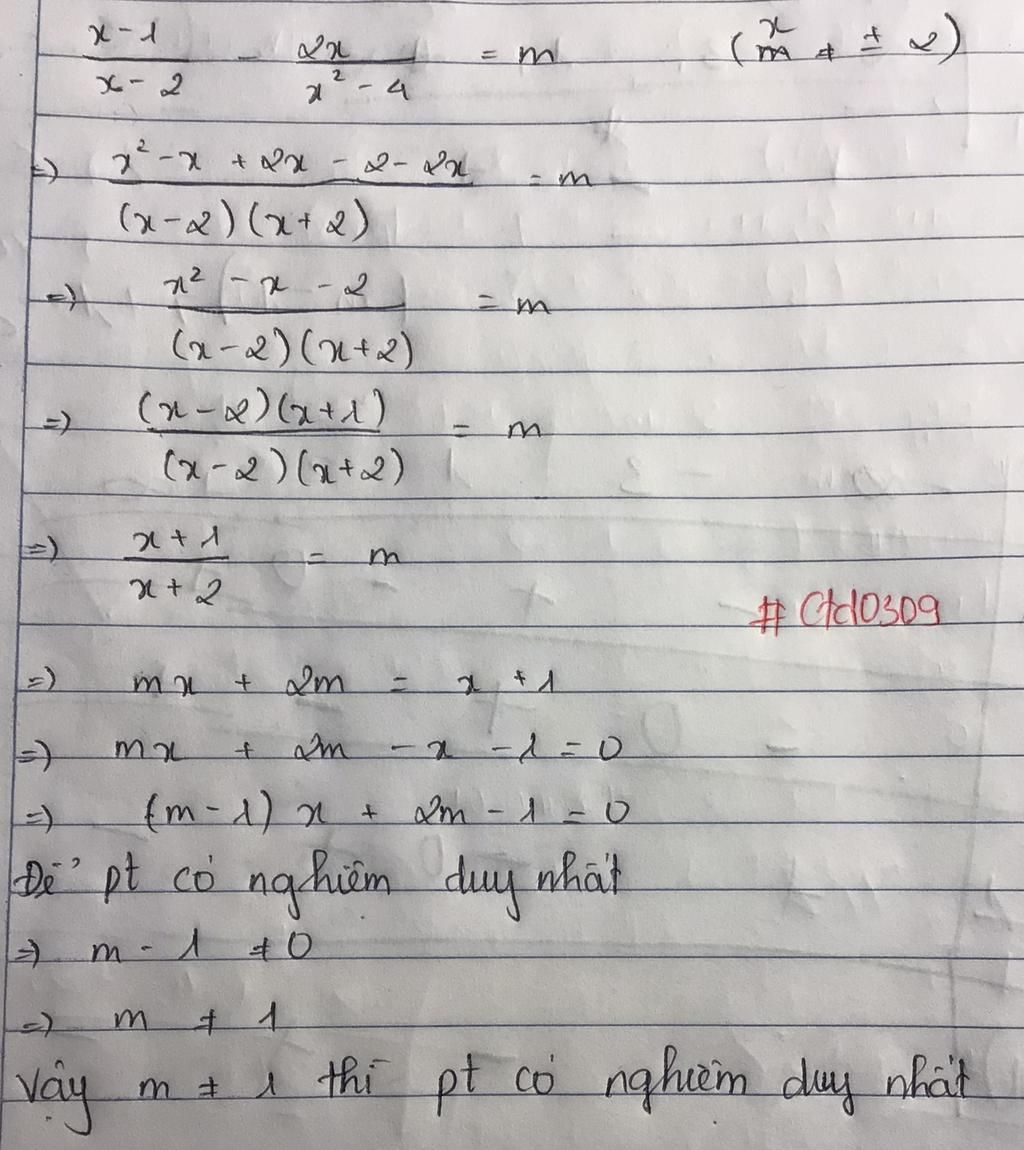 x-1/x-2 - 2x/x²-4 = m (x m ≠ ± 2)
=) x²-x + 2x - 2 - 2x/(x-2)(x+2) = m
=) x² - x - 2/(x-2)(x+2) = m
=) (x-2)(x+1)/(x-2)(x+2) = m
=) x+1/x+2 = m
# Ctd0309
=) mx + 2m = x + 1
=) mx + 2m - x - 1 = 0
=) (m-1) x + 2m - 1 = 0
Để pt có nghiệm duy nhất
=) m - 1 ≠ 0
=) m ≠ 1
Vậy m ≠ 1 thì pt có nghiệm duy nhất